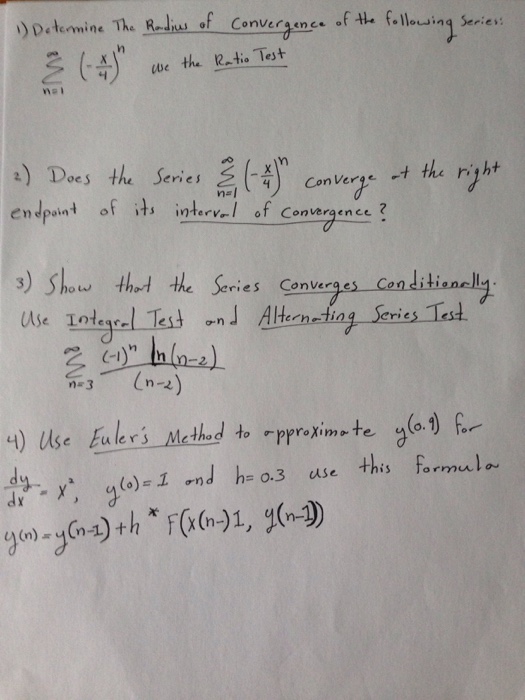 1) Determine The Radius of Convergence of the following Series:
∞ Σ n=1 (-x/4)^n use the Ratio Test
2) Does the Series ∞ Σ n=1 (-x/4)^n converge at the right
endpoint of its interval of Convergence?
3) Show that the Series Converges Conditionally.
Use Integral Test and Alternating Series Test
∞ Σ n=3 (-1)^n ln(n-2) / (n-2)
4) Use Euler's Method to approximate y(0.9) for
dy/dx = x², y(0)=1 and h=0.3 use this formula
y(n)=y(n-1)+h * F(x(n-)1, y(n-1))